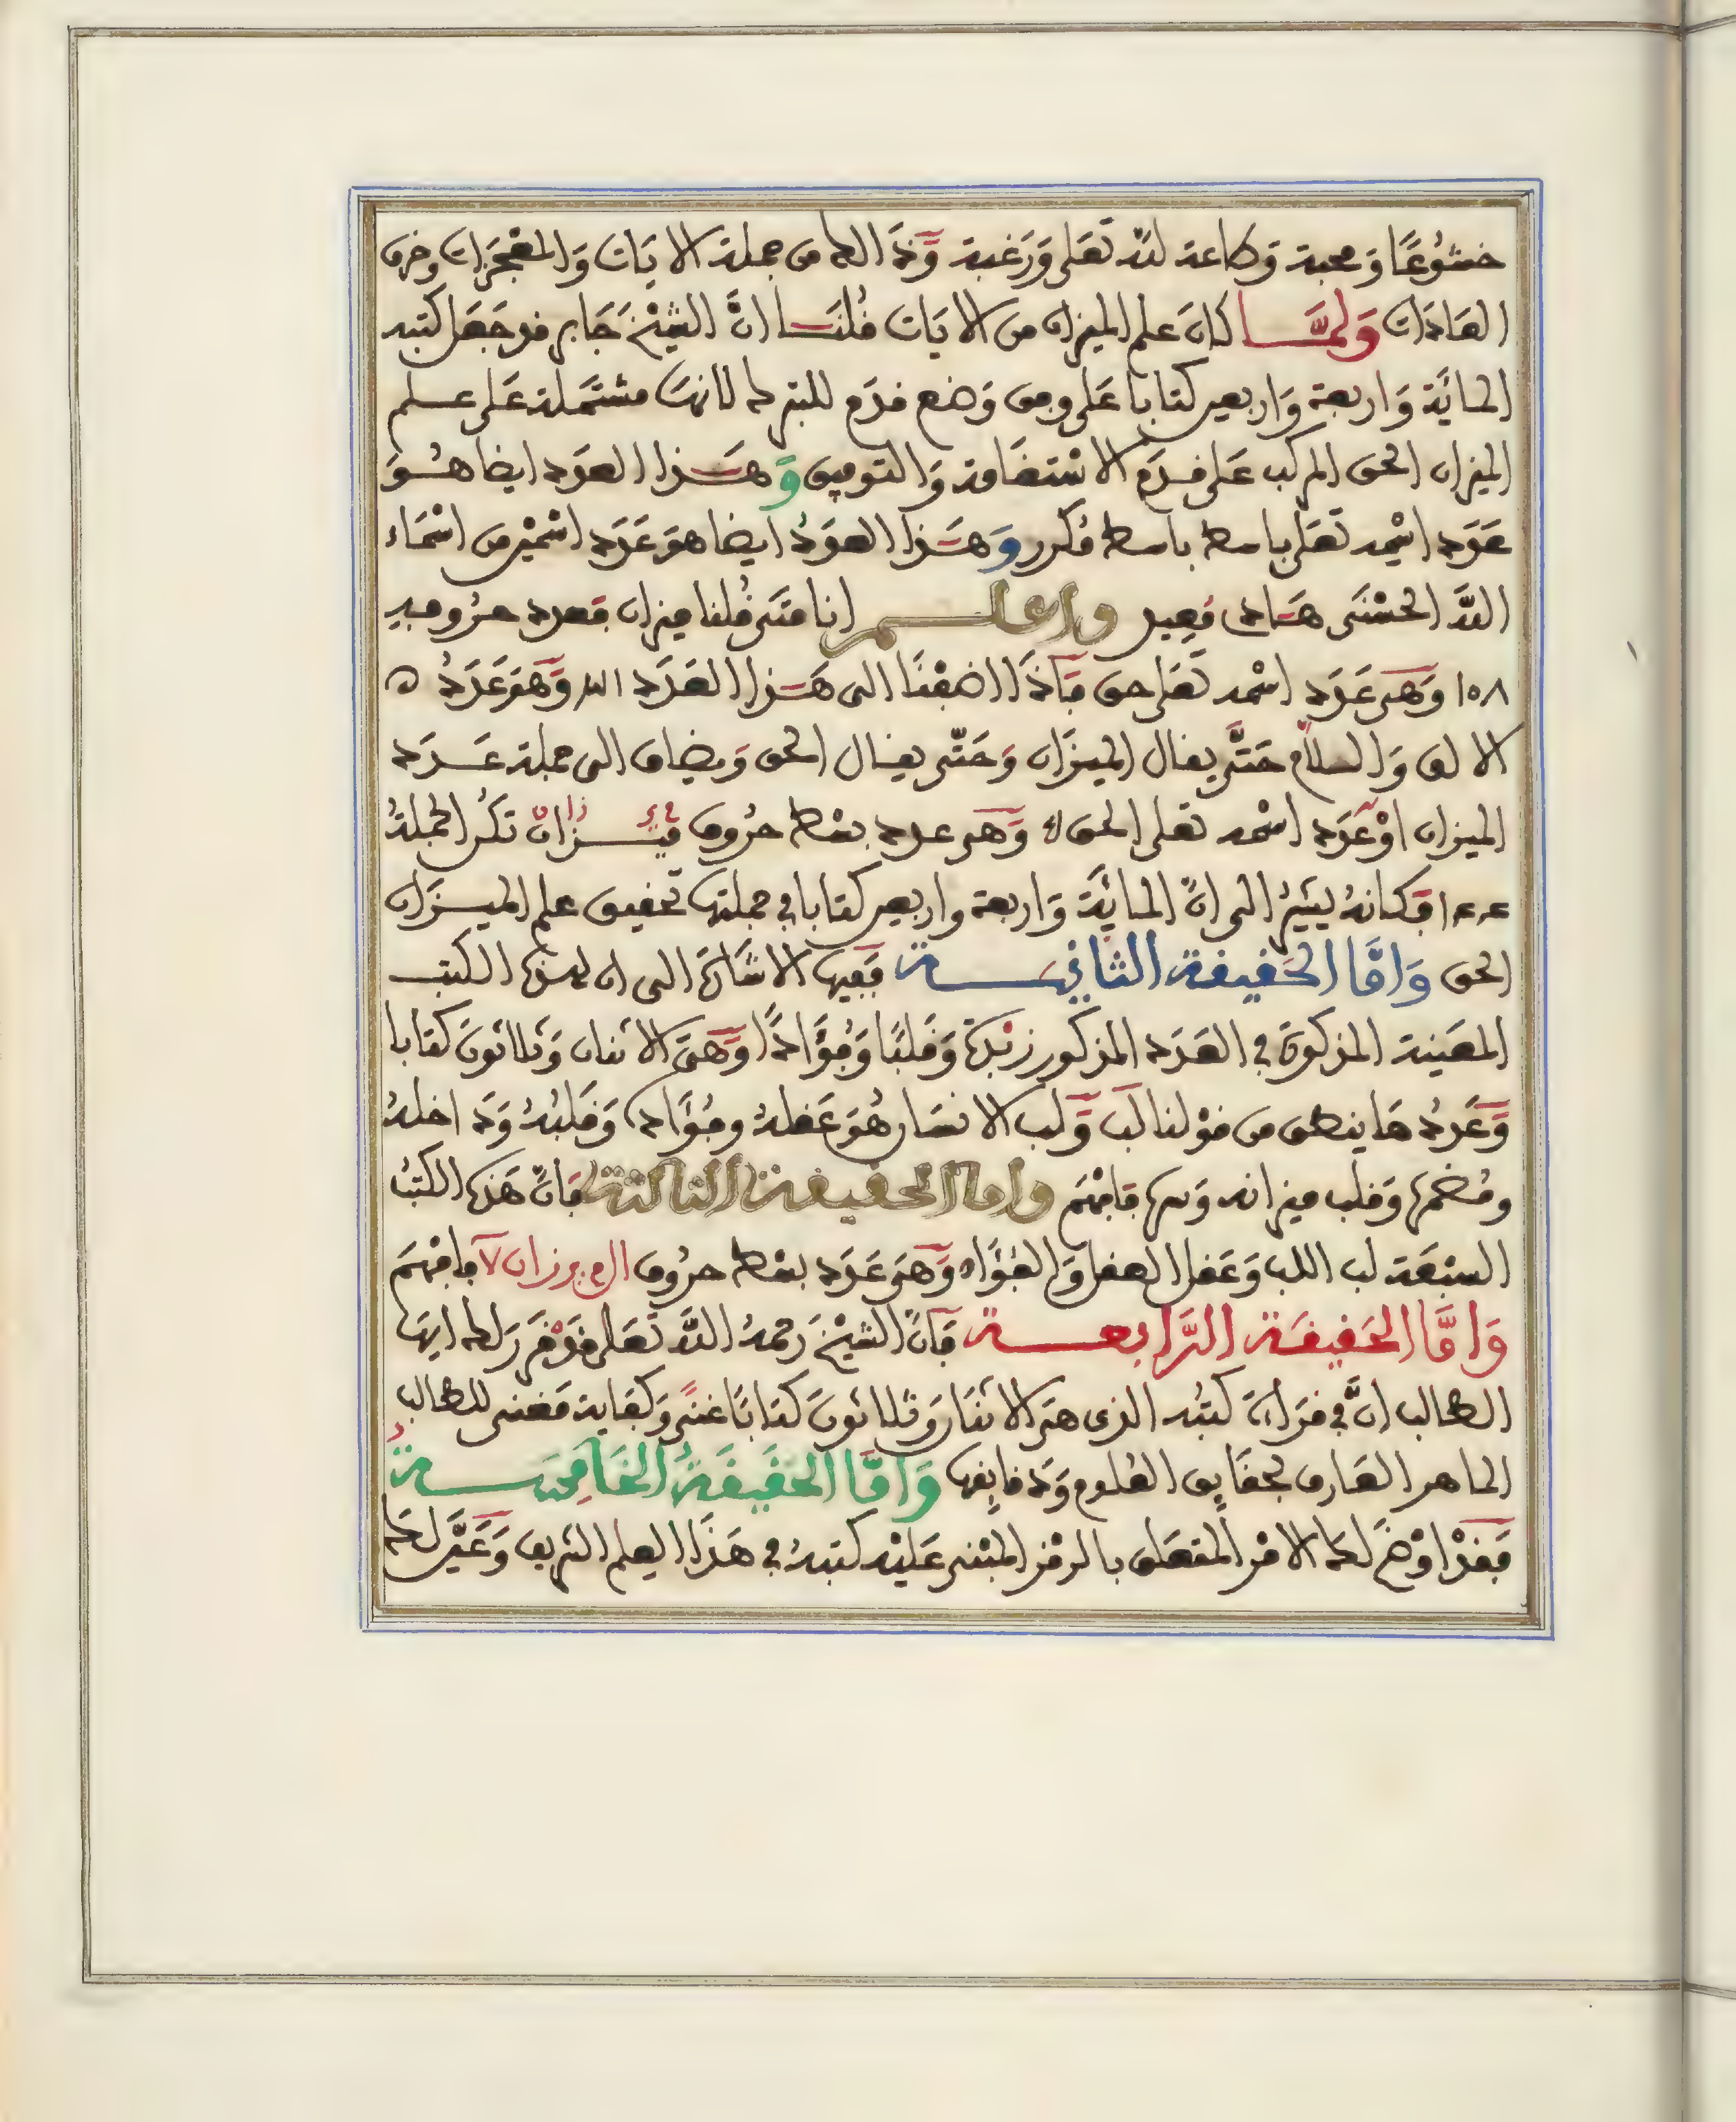 خشوعًا ومحبة وطاعة لله تعلى ورغبة وذالك من جملة الايات والمعجزات وخرق
العادات ولمّا كان علم الميزان من الايات قلنا انّ الشيخ جابر قد جعل كتبه
المائة واربعة واربعين كتابا على وفق وضع قدم للتبرك لانها مشتملة على علم
الميزان الحق المركب على قدم الاستقامة والتوفيق وهذا العدد ايضا هو
عدد اسمه تعلى باسط باسط مكرر وهذا العدد ايضا هو عدد اسمين من اسماء
الله الحسنى هاد معيد واعلم انا متى قلنا ميزان فعدد حروفه
١٥٨ وهى عدد اسمه تعلى حق فاذا اضفنا الى هذا العدد وهو عدد
الالف والسلام حتّى يقال الميزان وحتّى يقال الحق ويضاف الى جملة عدد
الميزان او عدد اسمه تعلى الحق وهى عدد بسط حروف ميزان تكن الجملة
١٤٤ فكانه يشير الى انّ المائة واربعة واربعين كتابا في جملتها تحقيق علم الميزان
الحق وامّا الحقيقة الثانية ففيها الاشارة الى ان لهذه الكتب
المعينة المذكورة في العدد المذكور زبدة وقلبًا وفؤادًا وهى الاثنان وثلاثون كتابا
وعدد ما ينطق من قولنا لب ولب الانسان هو عقله وفؤاده وقلبه وداخله
وقلب ميزانه وسرها فافهم وامّا الحقيقة الثالثة فانّ هذه الكتب
السبعة لب اللب وعقل العقل والفؤاد وهى عدد بسط حروف ال م ى ز ا ن ٧ فافهم
وامّا الحقيقة الرّابعة فانّ الشيخ رحمه الله تعلى قد قرر لك ايها
الطالب انّ في قراءة كتبه الذى هى الاثنان وثلاثون كتابًا غنى وكفاية فمغنى للطالب
الماهر العارف بحقايق العلوم ودقايقها وامّا الحقيقة الخامسة
فقد اوضح لك الامر المتعلق بالرمز المبنى عليه كتبه في هذا العلم الشريف وعيّن لك